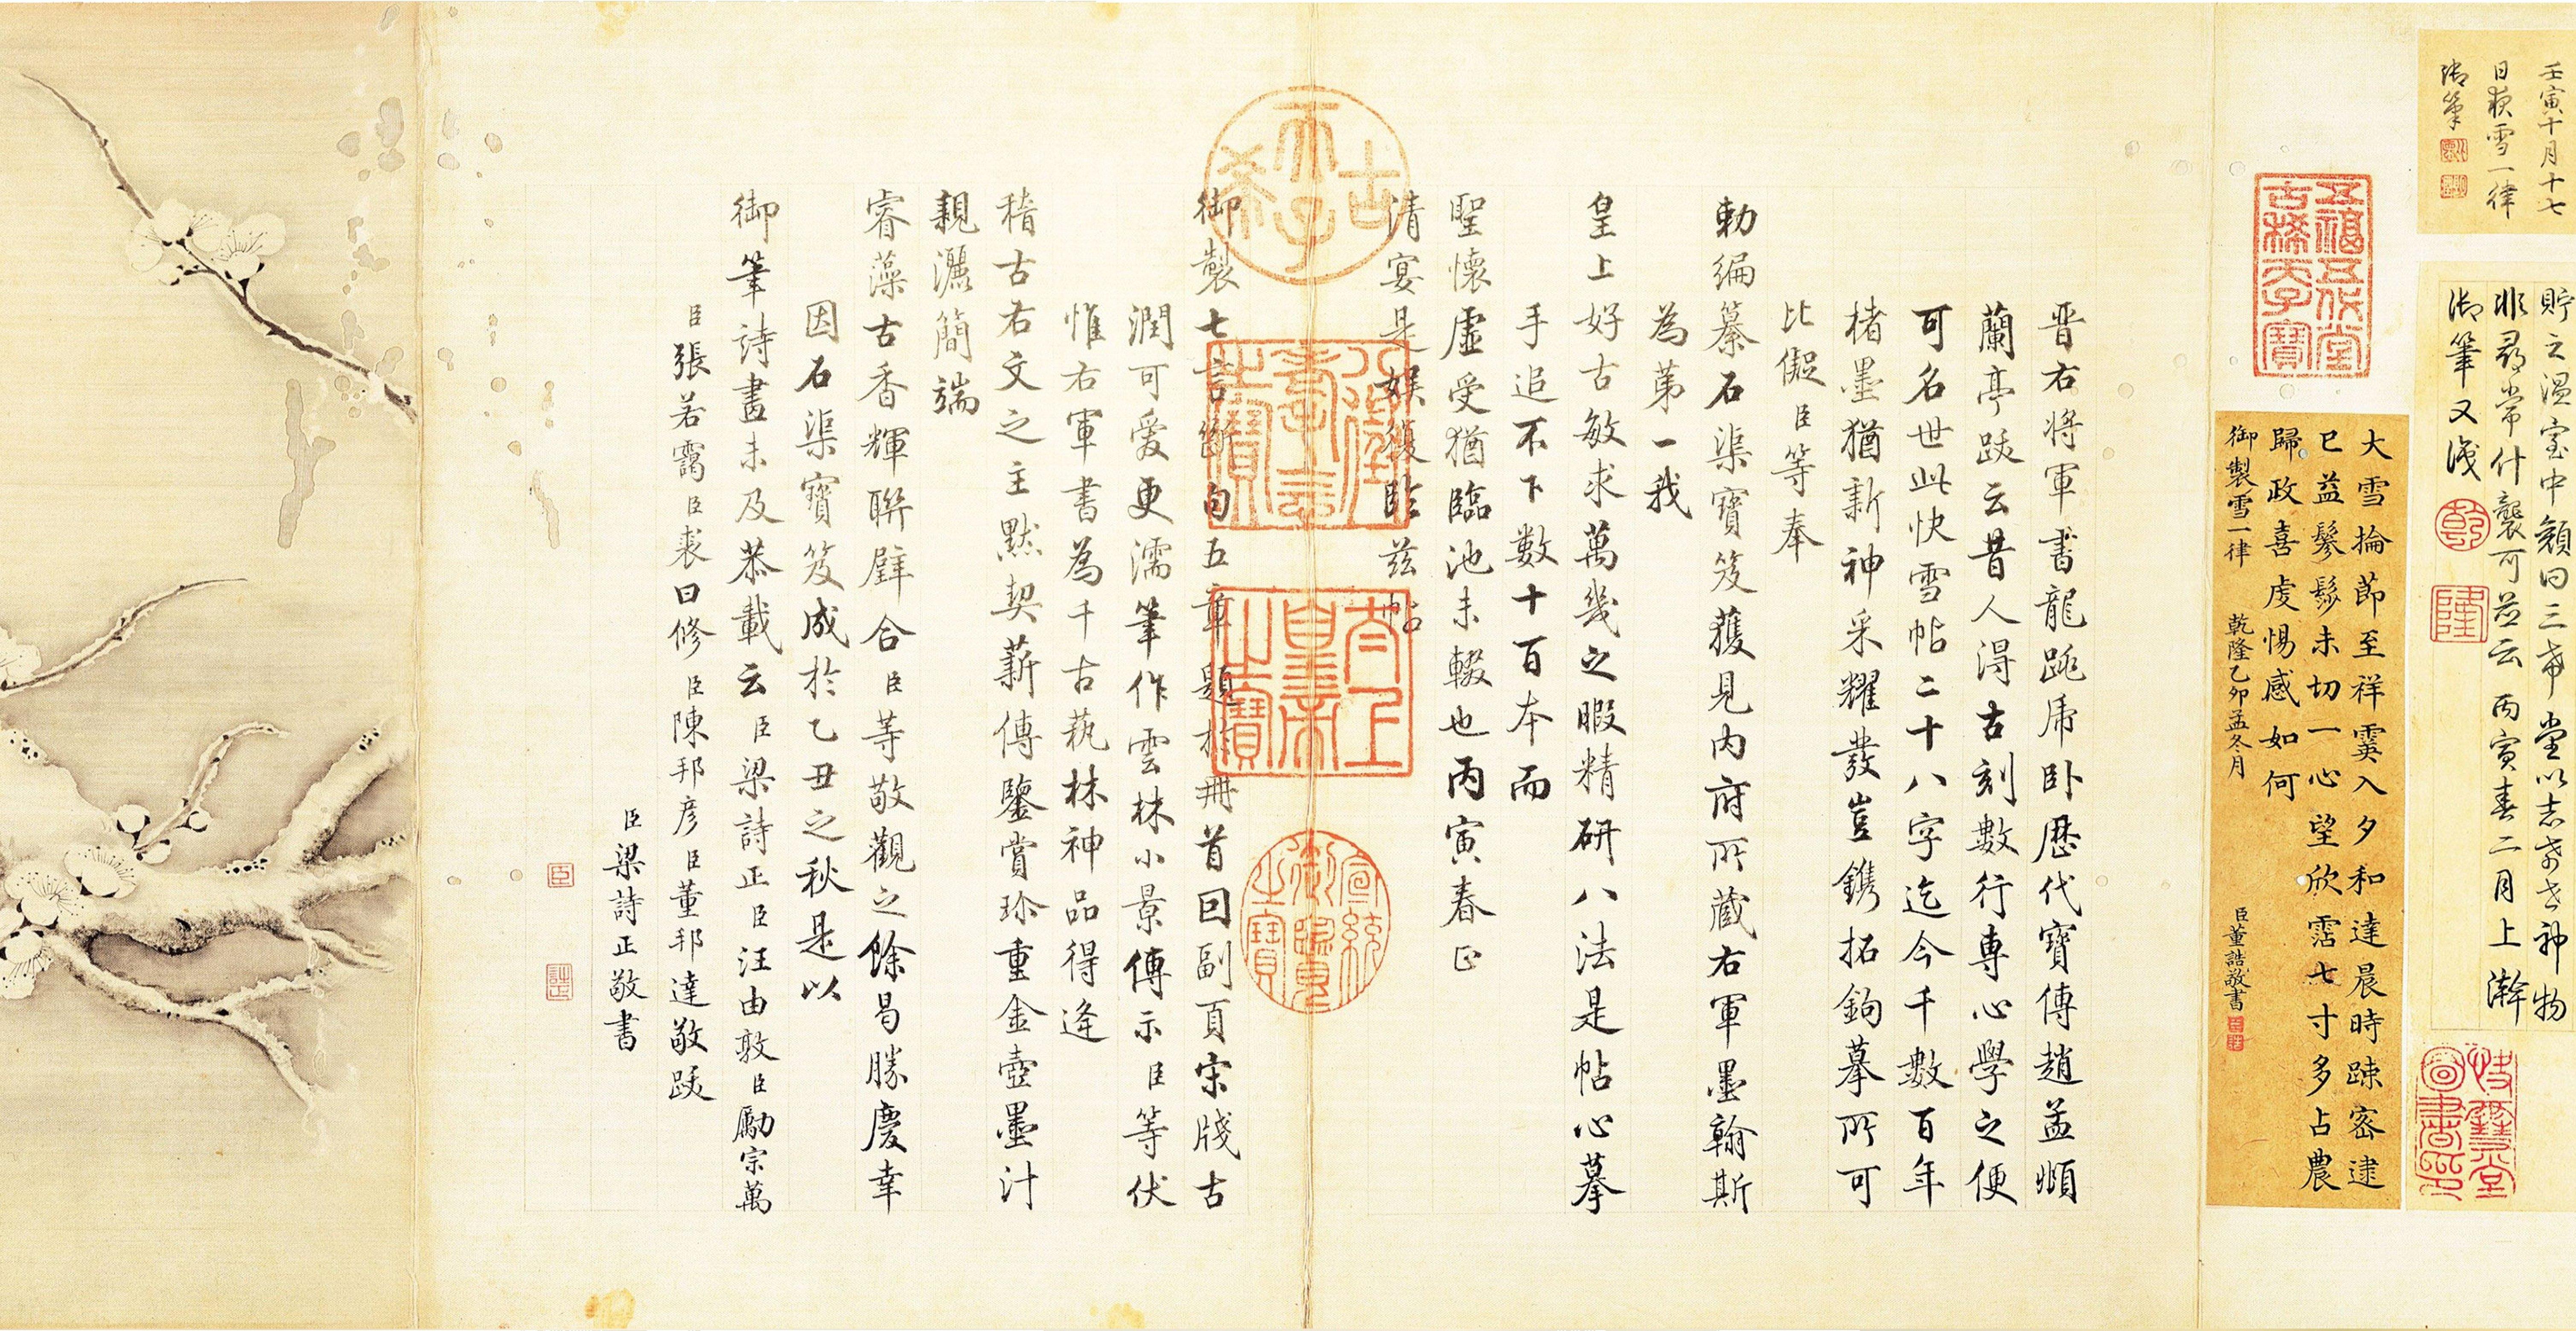 壬寅十月十七
日疊雪一律
御筆
貯之溫室中顏曰三希堂以志希世神物
非尋常什襲可並云丙寅春二月上澣
御筆又識
乾
隆
五福五代堂
古稀天子寶
大雪掄節至祥霙入夕和達晨時疎密逮
巳益鬖鬖未切一心望欣霑七寸多占農
歸政喜虔惕感如何
御製雪一律 乾隆乙卯孟冬月 臣董誥敬書
晉右將軍書龍跳虎臥歷代寶傳趙孟頫
蘭亭跋云昔人得古刻數行專心學之便
可名世此快雪帖二十八字迄今千數百年
楮墨猶新神采耀發豈鐫拓鉤摹所可
比儗臣等奉
勅編纂石渠寶笈獲見內府所藏右軍墨翰斯
為第一我
皇上好古敏求萬幾之暇精研八法是帖心摹
手追不下數十百本而
聖懷虛受猶臨池未輟也丙寅春正
清宴是娛復臨茲帖
御製七言斷句五章題於冊首回副頁宋牋古
潤可愛更濡筆作雲林小景傳示臣等伏
惟右軍書為千古蓺林神品得逢
稽古右文之主默契薪傳鑒賞珍重金壺墨汁
親灑簡端
睿藻古香輝聯璧合臣等敬觀之餘曷勝慶幸
因石渠寶笈成於乙丑之秋是以
御筆詩畫未及恭載云臣梁詩正臣汪由敦臣勵宗萬
臣張若靄臣裘曰修臣陳邦彥臣董邦達敬跋
臣梁詩正敬書
古希天子
八徵耄念之寶
太上皇帝之寶
宣統御覽之寶
臣